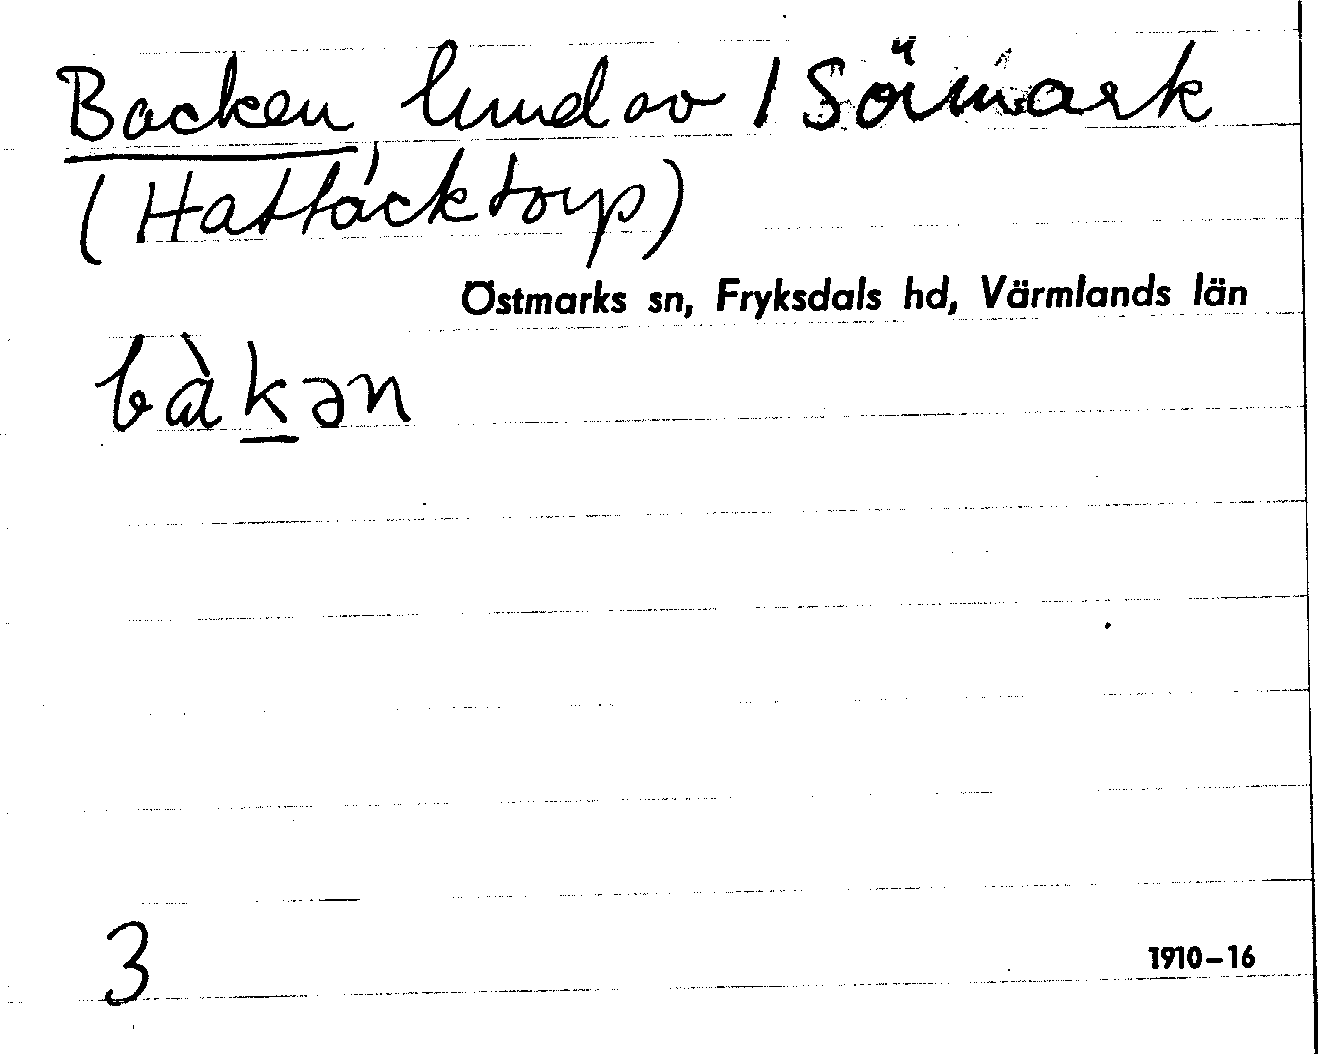 Backen hmd av 1 Sörmark
(Hatt
Östmarks sn, Fryksdals hd, Värmlands län
bàkən
3
1910–16